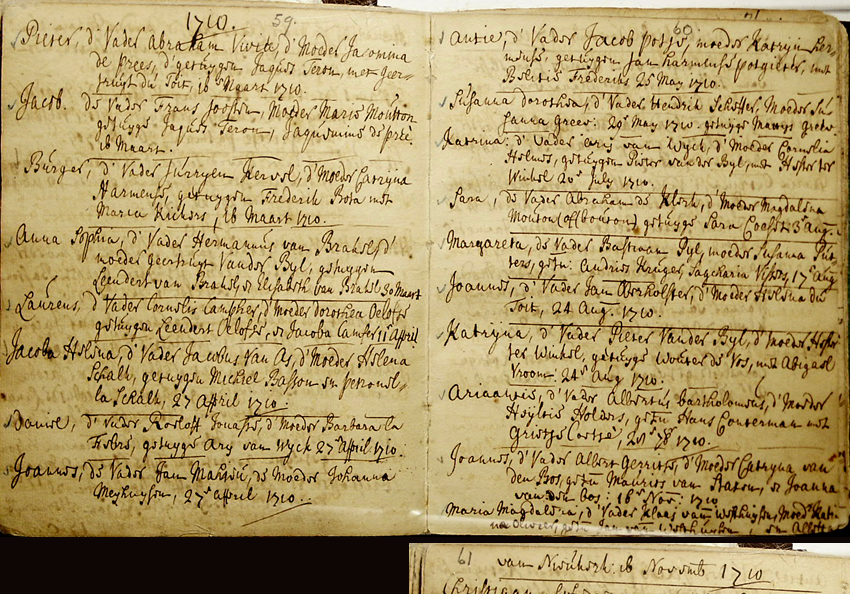 1710. 59.
Pieter, d' Vader Abraham Vivie, d' Moeder Jacomina
de Prees, d' getuygen Jaques Teron, met geer-
truyt du Toit, 16 Maart 1710.
Jacob. de Vader Frans Joosten, Moeder Maria Mouton
getuyge Jaques Teron, Jaquemine de pree.
16 Maart.
Burger, d' Vader Jurryen Kervel, d' Moeder Catryna
Harmense, getuygen Frederik Bota met
Maria Kickers, 16 Maart 1710.
Anna Sophia, d' Vader Hermannus van Brakel, d'
moeder geertruyt Vander Byl, getuygen
Leendert van Brakel, en Elisabeth van Brakel 30 Maart
Laurens, d' Vader Cornelis Campher, d' Moeder dorothea Oelofse
getuygen Leendert Oelofse, en Jacoba Camfer, 11 April
Jacoba Helena, d' Vader Jacobus Van As, d' Moeder Helena
Schalk, getuygen Michiel Basson en petronel-
la Schalk, 27 Affril 1710.
Daniel, d' Vader Roeloff Jonasse, d' Moeder Barbara la
Febre, getuyge Ary van Wyck 27 Affril 1710.
Joannes, de Vader Jan Mahieu, de Moeder Johanna
Meyhuysen, 27 affril 1710.
60
Antie, d' Vader Jacob Potje, moeder Katryn Her-
mense, getuygen Jan harmense potgieter, met
Boeltie Frederikx 25 May 1710.
Susanna Dorothea, d' Vader Hendrik Schoffer Moeder Su-
sanna Greev: 29 May 1710. getuyge Mattys Grove.
Katrina: d' Vader Arij van Wyck, d' Moeder Cornelia
Helmes, getuygen Pieter vander Byl, met Hester ter
Winkel 20 July 1710.
Sara, de Vader Abraham de Klerk, d' Moeder Magdalena
Mouton (of bouton) getuyge Sara Coeset 3 Aug.
Margareta, de Vader Bastiaan Pyl, moeder Susanna Put-
ters, getu: Andries Kruger, Sacharia Visser, 17 Aug
Joannes, d' Vader Jan Oberholster, d' Moeder Helena du
Toit, 24 Aug. 1710.
Katryna, d' Vader Pieter Vander Byl, d' Moeder Hester
ter Winkel, getuyge Wouter de Vos, met Abigael
Vroom: 24 Aug 1710.
Ariaantie, d' Vader Albertus Bartholomeus, d' Moeder
Heyltie Helders, getu Hans Conterman met
Grietje 1710.
Joannes, d' Vader Albert Gerrits, d' Moeder Catryna van
den Bos, getu Maurits van Staden, en Joanna
van den bos: 16 Nov: 1710
Maria Magdalena, d' Vader Klaas van Westhuysen, Moed' Kati-
na Olivier, getu Jan van Westhuysen en
61 van Nieukerk: 16 Novemb 1710
Christiaan